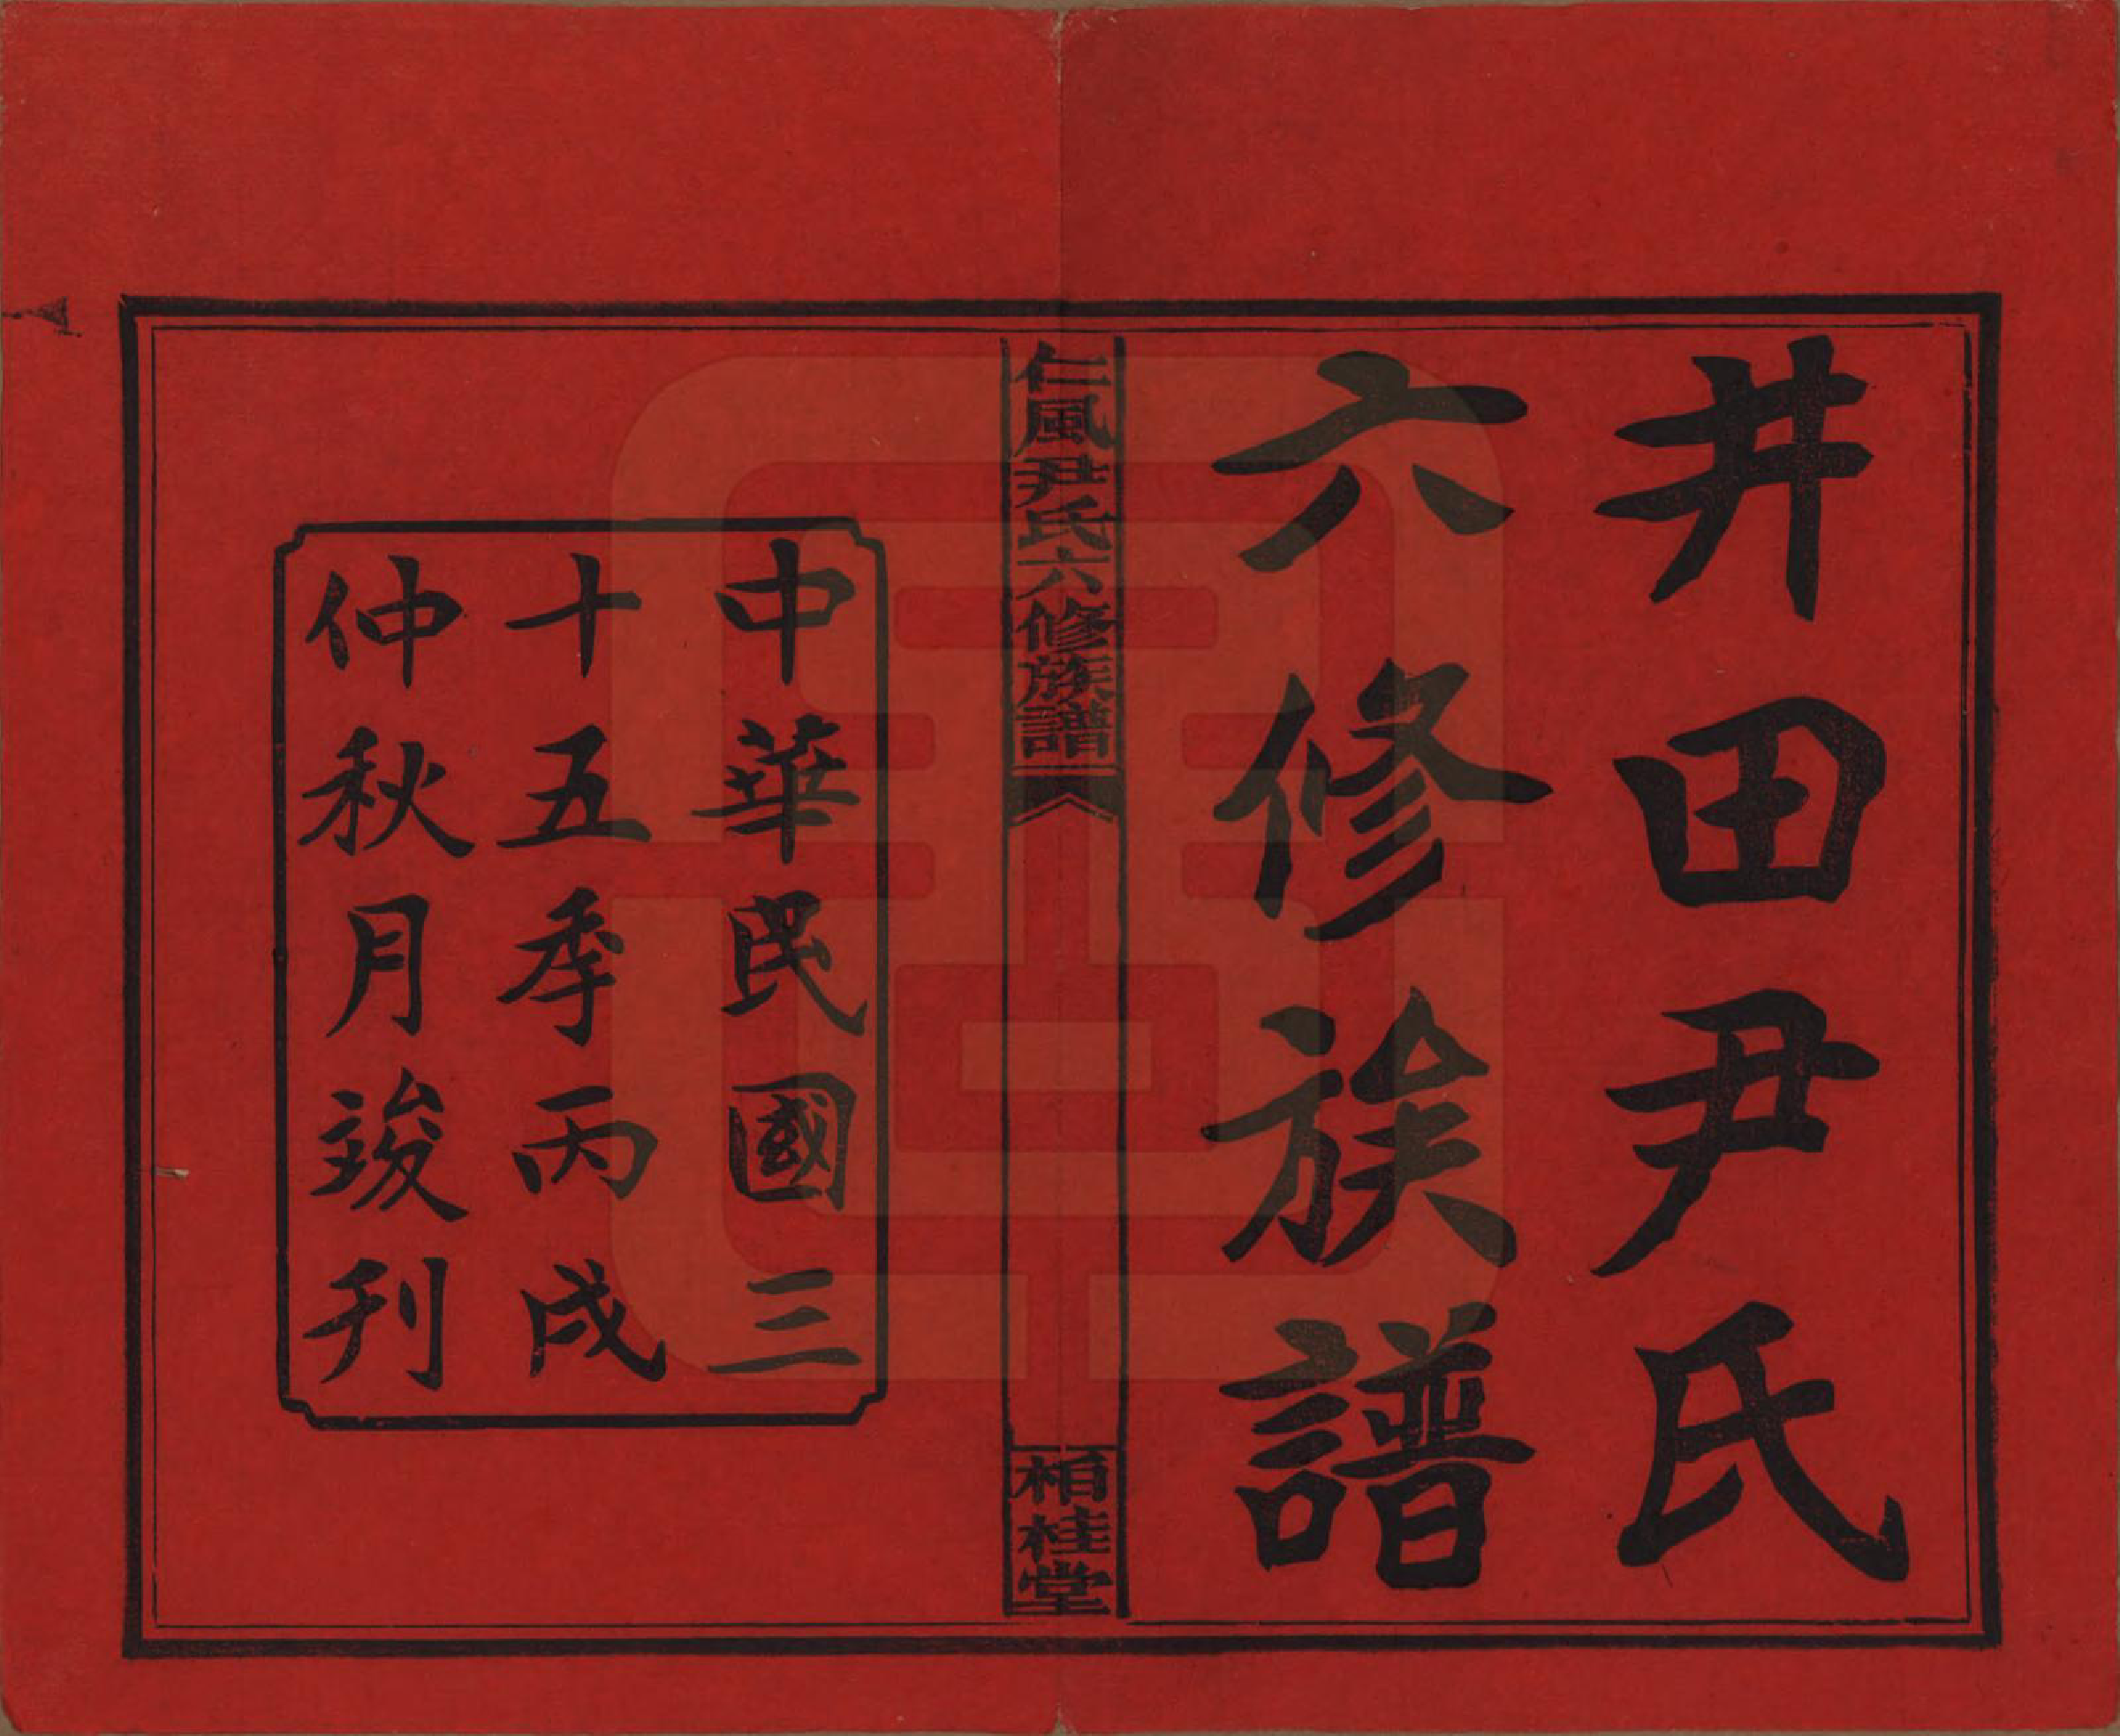 井田尹氏
六修族譜
仁風尹氏六修族譜
柏桂堂
中華民國三
十五季丙戌
仲秋月竣刊